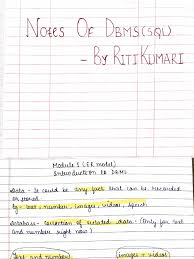 Notes Of DBMS(SQL)
- By RITI KUMARI
Module 1 (ER model)
Introduction to DBMS
Data - It could be any fact that can be recorded
or stored
eg:- text, number, images, videos, speech
Database - Collection of related data. (Only for text
and number right now)
Text and number
images + videos